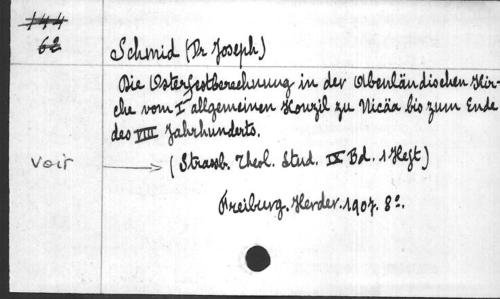 144
62
Schmid (Dr Joseph)
Die Osterfestberechnung in der Abenländischen Kir-
che vom I allgemeinen Konzil zu Nicäa bis zum Ende
des VIII Jahrhunderts.
voir → (Strassb. Theol. Stud. IX Bd. 1 Heft)
Freiburg. Herder. 1907. 8º.